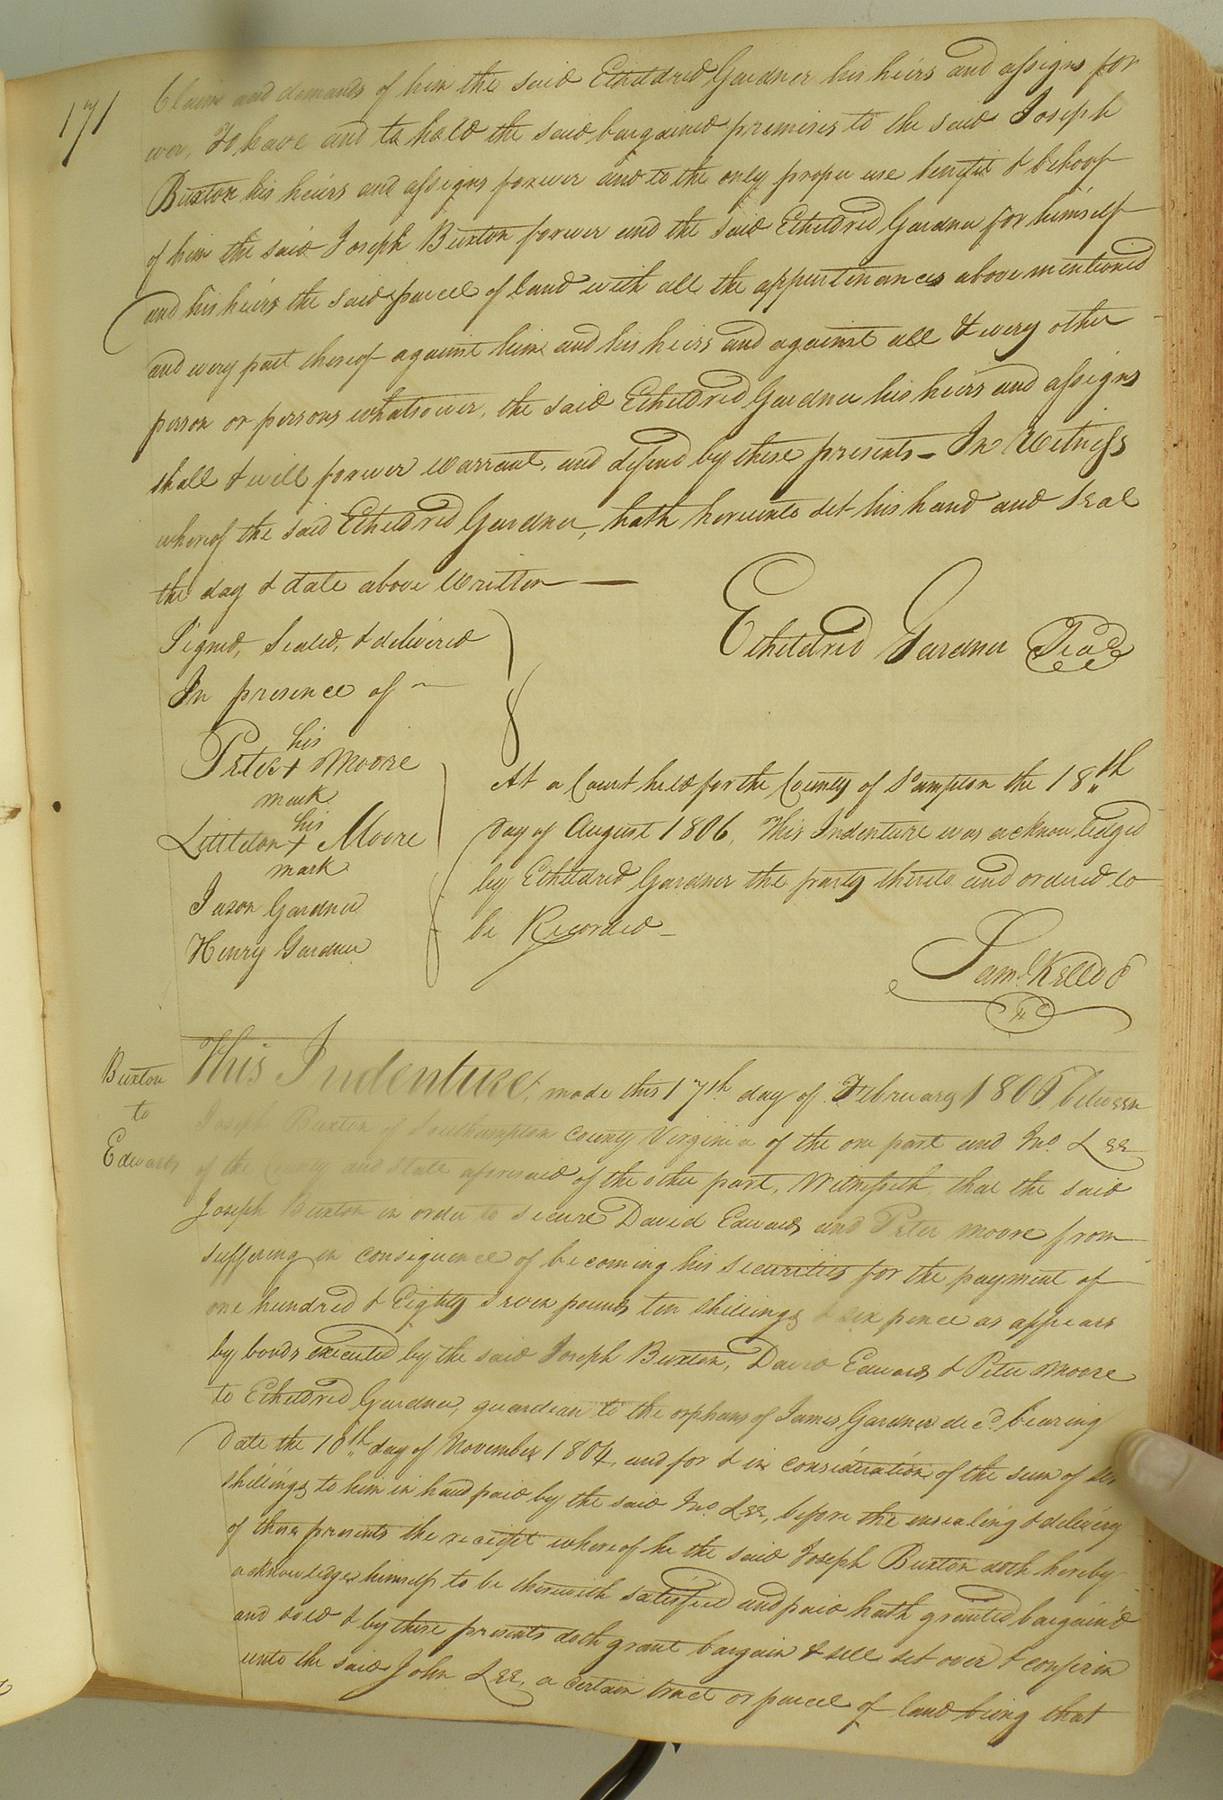 171
Claim and demands of him the said Etheldred Gardner his heirs and assigns for
ever, To have and to hold the said bargained premises to the said Joseph
Buxton his heirs and assigns forever and to the only proper use benefit & behoof
of him the said Joseph Buxton forever and the said Etheldred Gardner for himself
and his heirs the said parcel of land with all the appurtinances above mentioned
and every part thereof against him and his heirs and against all & every other
person or persons whatsoever, the said Etheldred Gardner his heirs and assigns
shall & will forever warrant, and defend by these presents – In Witness
whereof the said Etheldred Gardner, hath hereunto set his hand and Seal
the day & date above written —
Signed, Sealed, & delivered
In presence of ~
Etheldred Gardner Seal
his
Peter + Moore
mark
his
Littleton + Moore
mark
Jason Gardner
Henry Gardner
At a Court held for the County of S°ampton the 18th
day of August 1806, This Indenture was acknowledged
by Etheldred Gardner the party thereto and ordered to
be Recorded –
Saml Kello C
Buxton
to
Edwards
This Indenture, made this 17th day of February 1806 between
Joseph Buxton of Southampton county Virginia of the one part and Jno. Lee
of the County and State aforesaid of the other part, Witnesseth, that the said
Joseph Buxton in order to secure David Edwards and Peter Moore from
suffering in consequence of becoming his securities for the payment of
one hundred & Eighty seven pounds ten shillings & six pence as appears
by bonds executed by the said Joseph Buxton, David Edwards & Peter Moore
to Etheldred Gardner, guardian to the orphans of James Gardner decd. bearing
Date the 10th day of November 1804, and for & in consideration of the sum of
shillings to him in hand paid by the said Jno. Lee, before the ensealing & delivery
of these presents the receipt whereof he the said Joseph Buxton doth hereby
acknowledge himself to be therewith satisfied and paid hath granted bargain'd
and sold & by these presents doth grant bargain & sell set over & confirm
unto the said John Lee, a certain tract or parcel of land being that